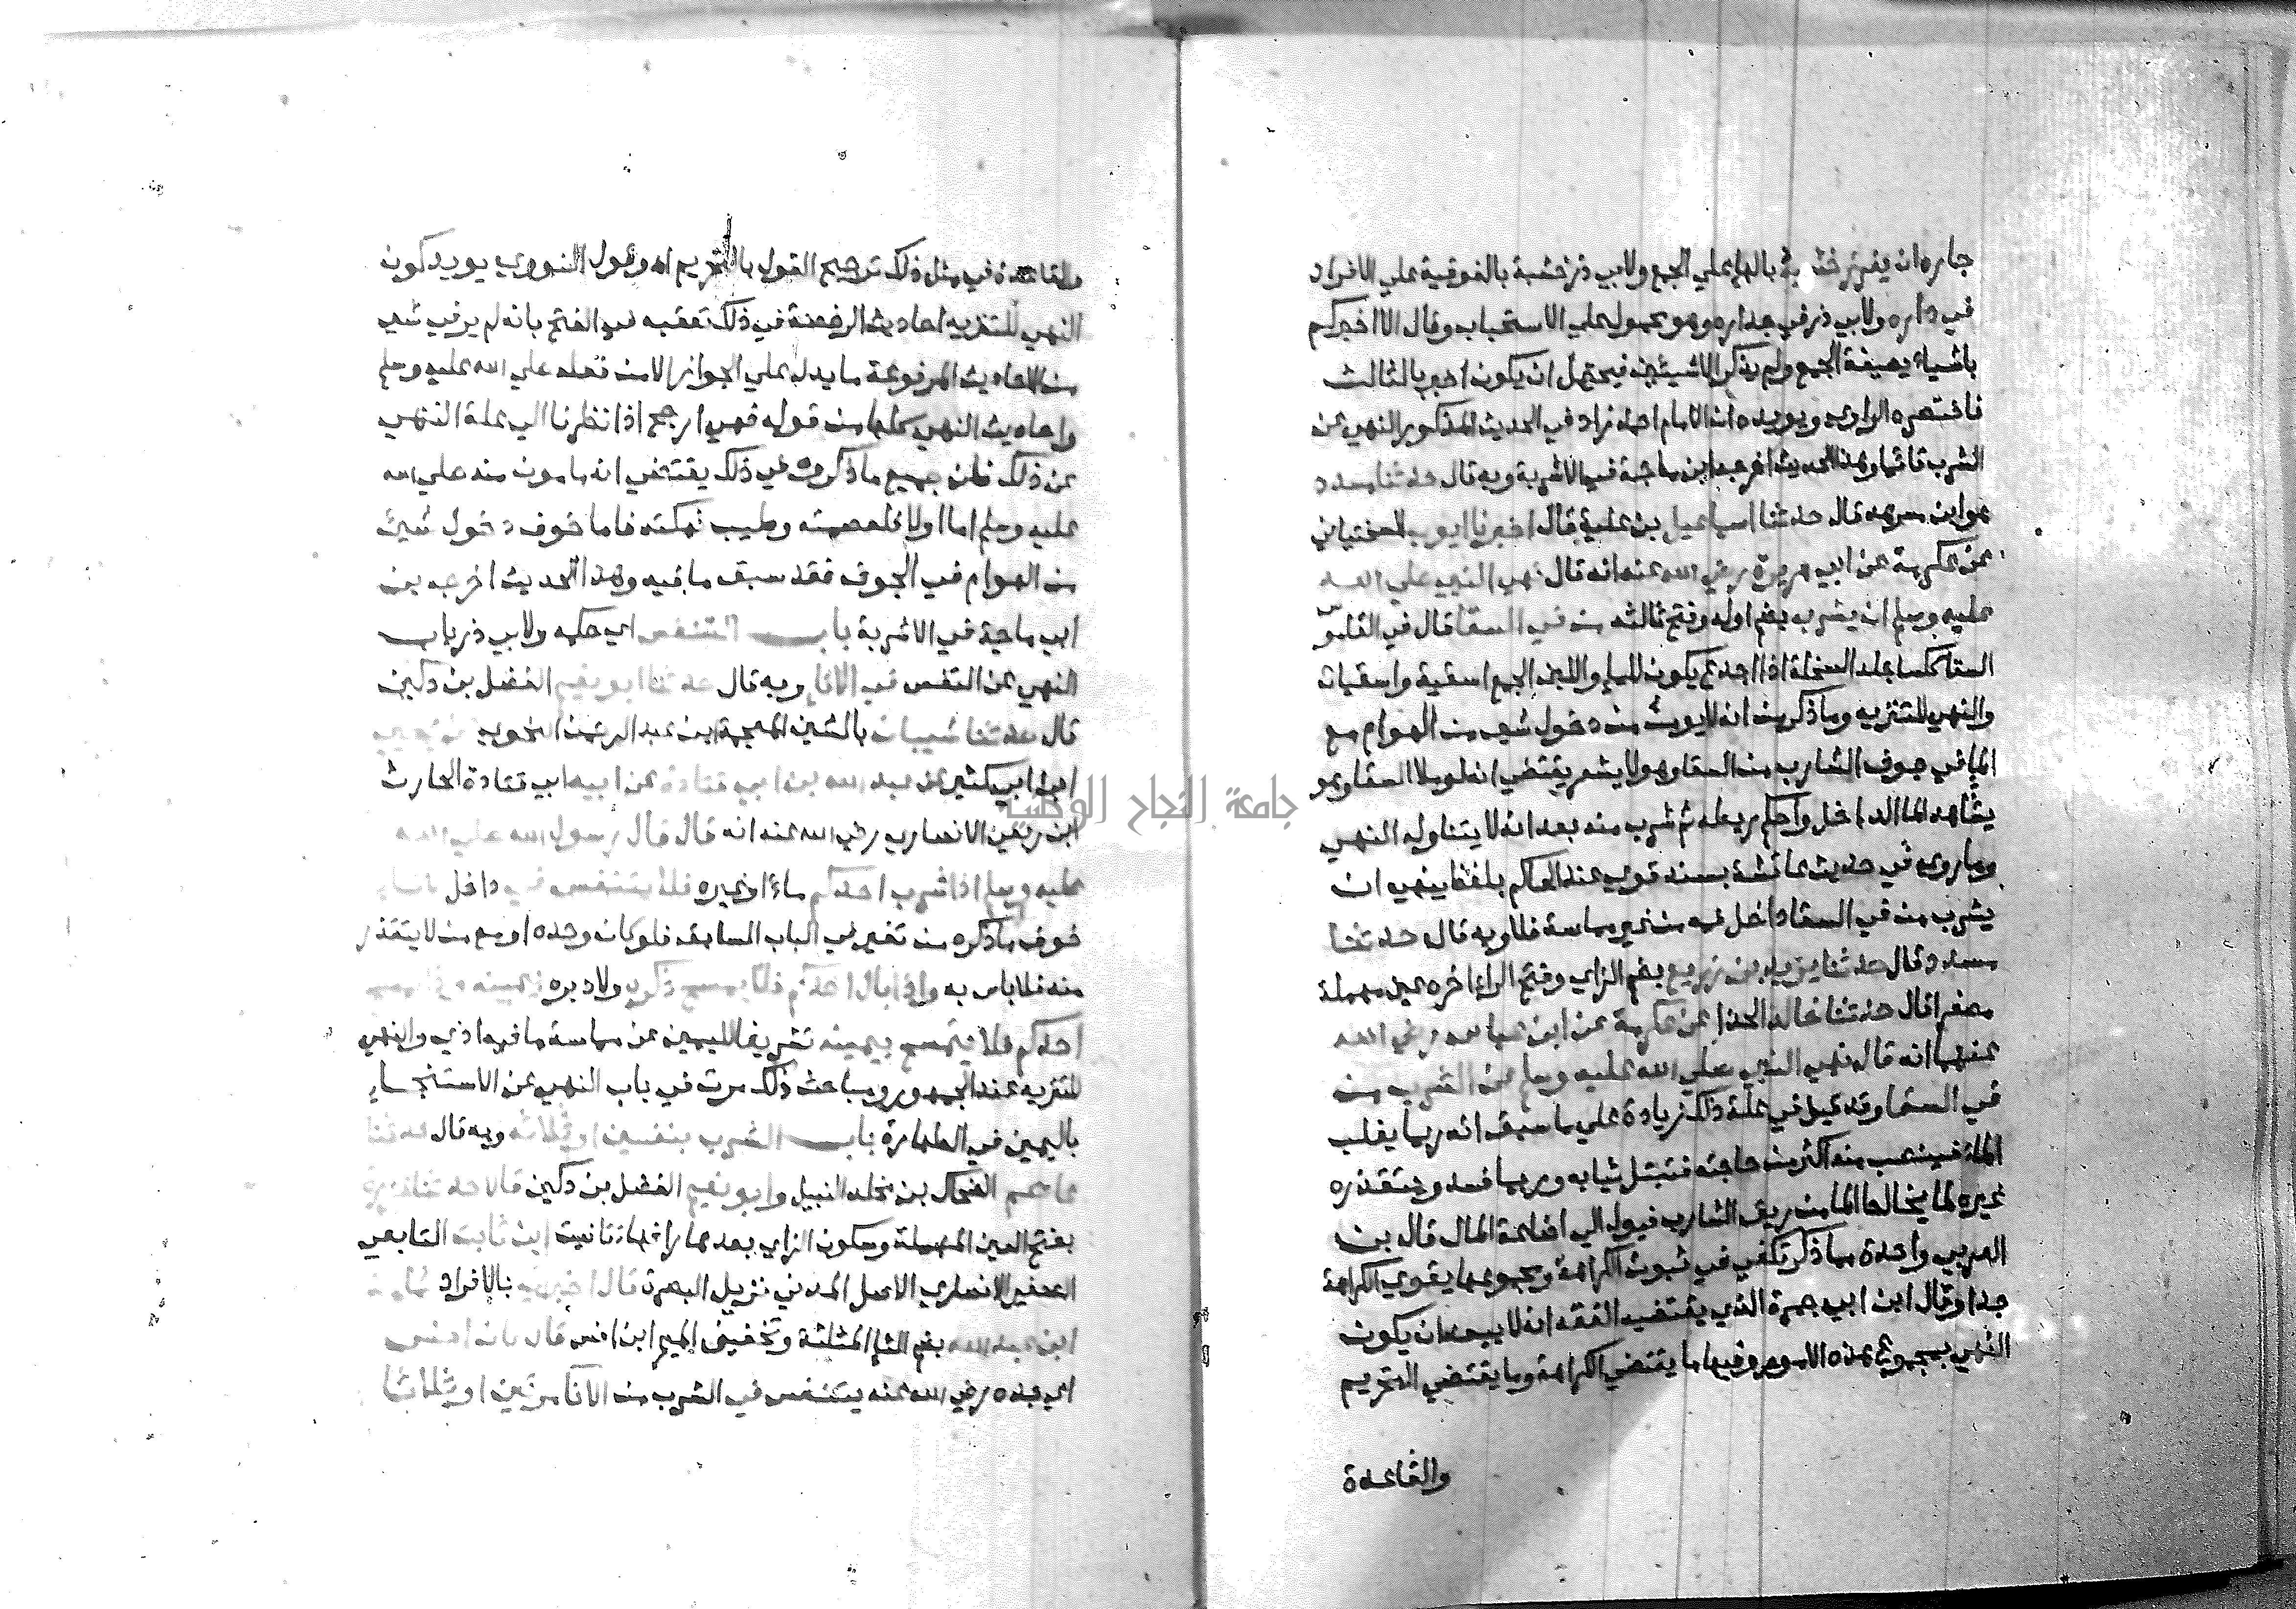 جاره ان يغرز خشبه بالهاء علي الجمع ولابي ذر خشبة بالفوقية علي الافراد
في داره ولابي ذر في جداره وهو محمول علي الاستحباب وقال الا اخبركم
باشياء بصيغة الجمع ولم يذكر الا شيئين فيحتمل ان يكون اخبر بالثالث
فاختصره الراوي ويويده ان الامام احمد زاد في الحديث المذكور النهي عن
الشرب قائما وهذا الحديث اخرجه ابن ماجة في الاشربة وبه قال حدثنا مسدد
هو ابن مسرهد قال حدثنا اسماعيل بن علية قال اخبرنا ايوب السختياني
عن عكرمة عن ابي هريرة رضي الله عنه انه قال نهي النبي صلي الله
عليه وسلم ان يشرب بضم اوله وفتح ثالثه من في السقا قال في القاموس
السقا ككسا جلد السخلة اذا اجذع يكون للماء واللبن الجمع اسقية واسقيات
والنهي للتنزيه وما ذكر من انه لا يومن من دخول شي من الهوام مع
الماء في جوف الشارب من السقا وهو لا يشعر يقتضي انه لو ملا السقا وهو
يشاهد الما الداخل واحكم ربطه ثم شرب منه بعد انه لا يتناوله النهي
وما روي في حديث عائشة بسند قوي عند الحاكم بلفظ نهي ان
يشرب من في السقا داخل فيه من غير مماسة فلا وبه قال حدثنا
مسدد قال حدثنا يزيد بن زريع بضم الزاي وفتح الراء اخره عين مهملة
مصغرا قال حدثنا خالد الحذا عن عكرمة عن ابن عباس رضي الله
عنهما انه قال نهي النبي صلي الله عليه وسلم عن الشرب من
في السقا وقد قيل في علة ذلك زيادة علي ما سبق انه ربما يغلب
الماء فينصب منه اكثر من حاجته فتبتل ثيابه وربما فسد ويتقذره
غيره لما يخالط الما من ريق الشارب فيول الي اضاعة المال قال بن
العربي واحدة مما ذكر تكفي في ثبوت الكراهة ومجموعها يقوي الكراهة
جدا وقال ابن ابي جمرة الذي يقتضيه الفقه انه لا يبعد ان يكون
النهي بمجموع هذه الامور وفيها ما يقتضي الكراهة وما يقتضي التحريم
والقاعدة
والقاعدة في مثل ذلك ترجيح القول بالتحريم اه وقول النووي يويد كون
النهي للتنزيه احاديث الرخصة في ذلك تعقبه في الفتح بانه لم ير في شي
من الاحاديث المرفوعة ما يدل علي الجواز الا من فعله صلي الله عليه وسلم
واحاديث النهي كلها من قوله فهي ارجح اذا نظرنا الي علة النهي
عن ذلك فان جميع ما ذكروه في ذلك يقتضي انه مامون منه صلي الله
عليه وسلم اما اولا فلعصمته وطيب نكهته فاما خوف دخول شيئ
من الهوام في الجوف فقد سبق ما فيه وهذا الحديث اخرجه بن
ابي ماجة في الاشربة باب التنفس اي حكمه ولابي ذر باب
النهي عن التنفس في الاناء وبه قال حدثنا ابو نعيم الفضل بن دكين
قال حدثنا شيبان بالشين المعجمة ابن عبد الرحمن النحوي عن يحيي
ابن ابي كثير عن عبد الله بن ابي قتادة عن ابيه ابي قتادة الحارث
ابن ربعي الانصاري رضي الله عنه انه قال قال رسول الله صلي الله
عليه وسلم اذا شرب احدكم ماءا وغيره فلا يتنفس في داخل الاناء
خوف ما ذكره من تغير في الباب السابق فلو كان وحده او مع من لا يتقذر
منه فلا باس به واذا بال احدكم فلا يمسح ذكره ولا دبره بيمينه واذا تمسح
احدكم فلا يتمسح بيمينه تشريفا لليمين عن مماسة ما فيه اذي والنهي
للتنزيه عند الجمهور ومباحث ذلك مرت في باب النهي عن الاستنجاء
باليمين في الطهارة باب الشرب بنفسين او ثلاثة وبه قال حدثنا
عاصم الضحاك بن مخلد النبيل وابو نعيم الفضل بن دكين قالا حدثنا عزرة
بفتح العين المهملة وسكون الزاي بعدها را فها تانيث ابن ثابت التابعي
الصغير الانصاري الاصل المدني نزيل البصرة قال اخبرني بالافراد ثمامة
ابن عبد الله بضم الثاء المثلثة وتخفيف الميم ابن انس قال كان انس
اي جده رضي الله عنه يتنفس في الشرب من الانا مرتين او ثلاثا
جامعة النجاح الوطنية